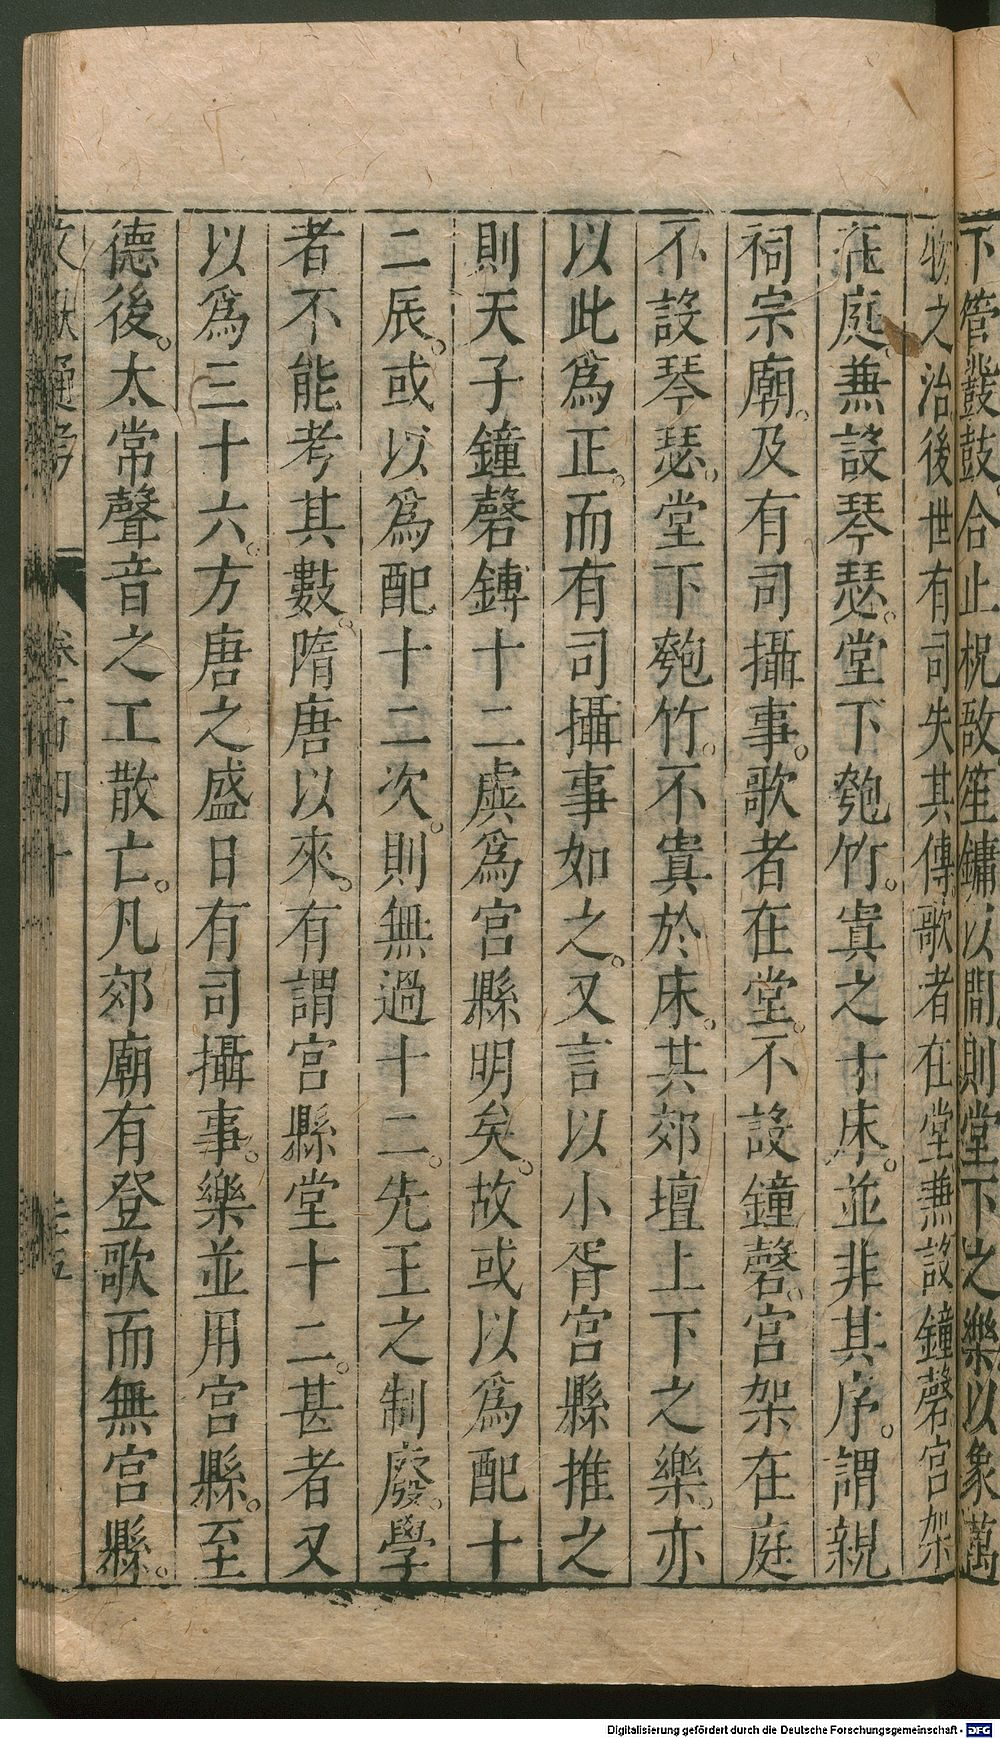 下管鼗鼓。合止柷敔。笙鏞以間。則堂下之樂。以象萬
物之治。後世有司失其傳。歌者在堂。兼設鐘磬。宮架
在庭。兼設琴瑟。堂下匏竹。寘之于床。並非其序。謂親
祠宗廟。及有司攝事。歌者在堂。不設鐘磬。宮架在庭
不設琴瑟。堂下匏竹。不寘於床。其郊壇上下之樂。亦
以此爲正。而有司攝事如之。又言以小胥宮縣推之
則天子鐘磬鎛十二虡爲宮縣明矣。故或以爲配十
二辰。或以爲配十二次。則無過十二。先王之制廢。學
者不能考其數。隋唐以來。有謂宮縣堂十二。甚者又
以爲三十六。方唐之盛日有司攝事。樂並用宮縣。至
德後。太常聲音之工散亡。凡郊廟有登歌而無宮縣。
文獻通考 卷一百四十
Digitalisierung gefördert durch die Deutsche Forschungsgemeinschaft - DFG